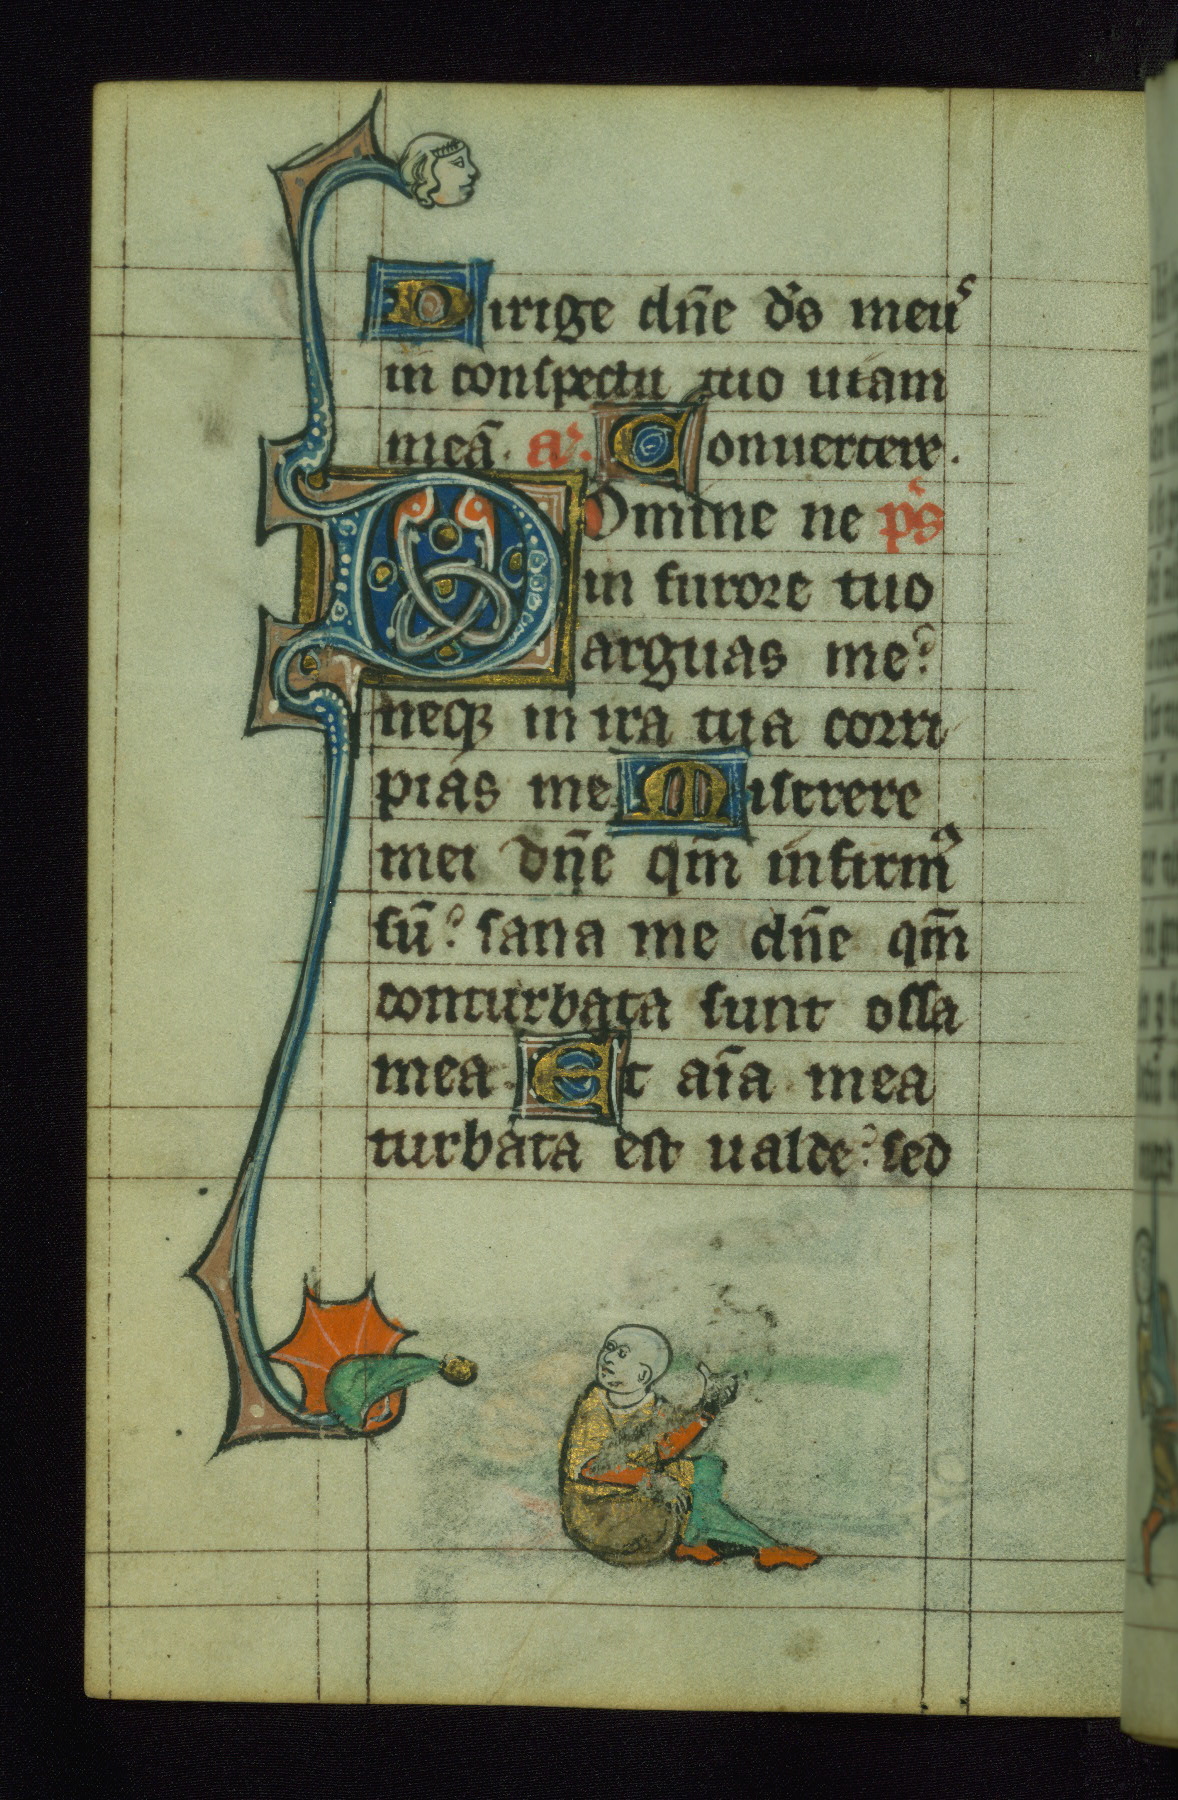 Dirige dn̄e d̓s meu᷒
in conspectu tuo uiam
meā. a᷒. Conuertere.
Domine ne p᷒s
in furore tuo
arguas me?
neqꝫ in ira tua corri
pias me Miserere
mei dn̄e qm̄ infirm᷒
sū? sana me dn̄e qm̄
conturbata sunt ossa
mea. Et aīa mea
turbata est ualde? sed